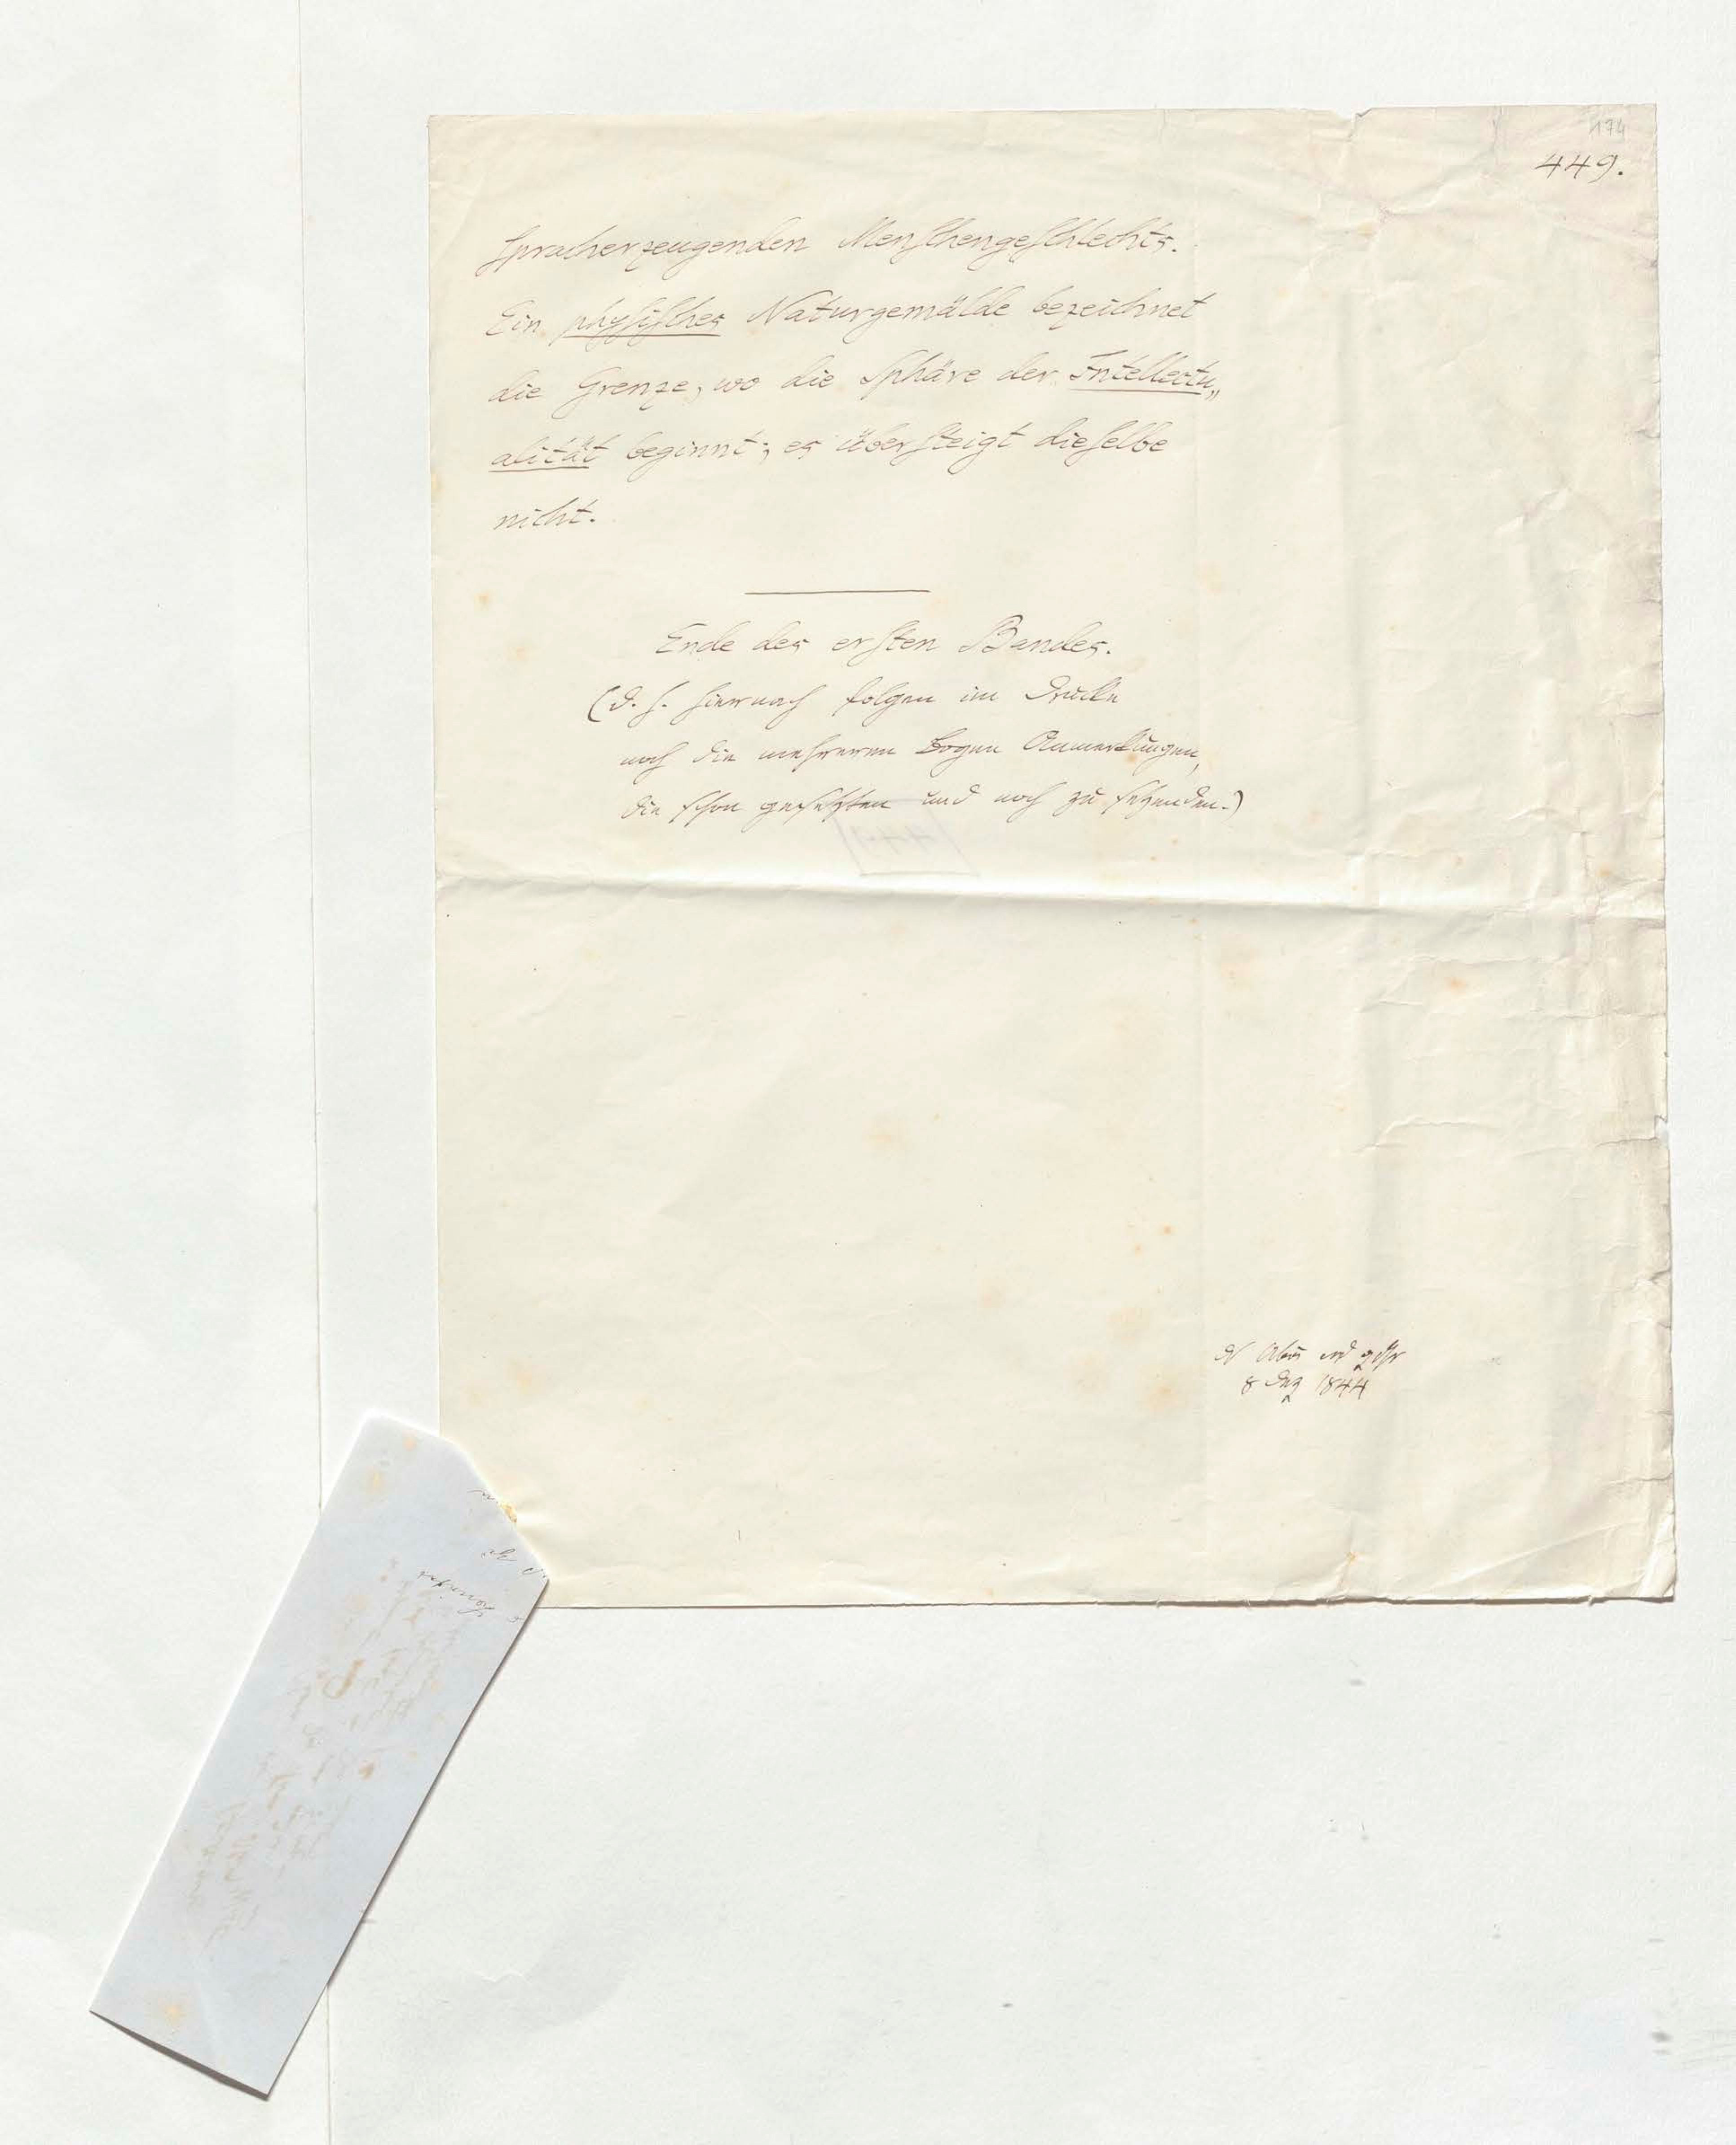 174
449.
spracherzeugenden Menschengeschlechts.
Ein physisches Naturgemälde bezeichnet
die Grenze, wo die Sphäre der Intellectu„
alität beginnt; es übersteigt dieselbe
nicht.
Ende des ersten Bandes.
(d. h. hiernach folgen im Drucke
noch die mehreren Bogen Anmerkungen,
die schon gesetzten und noch zu setzenden.)
8 1844